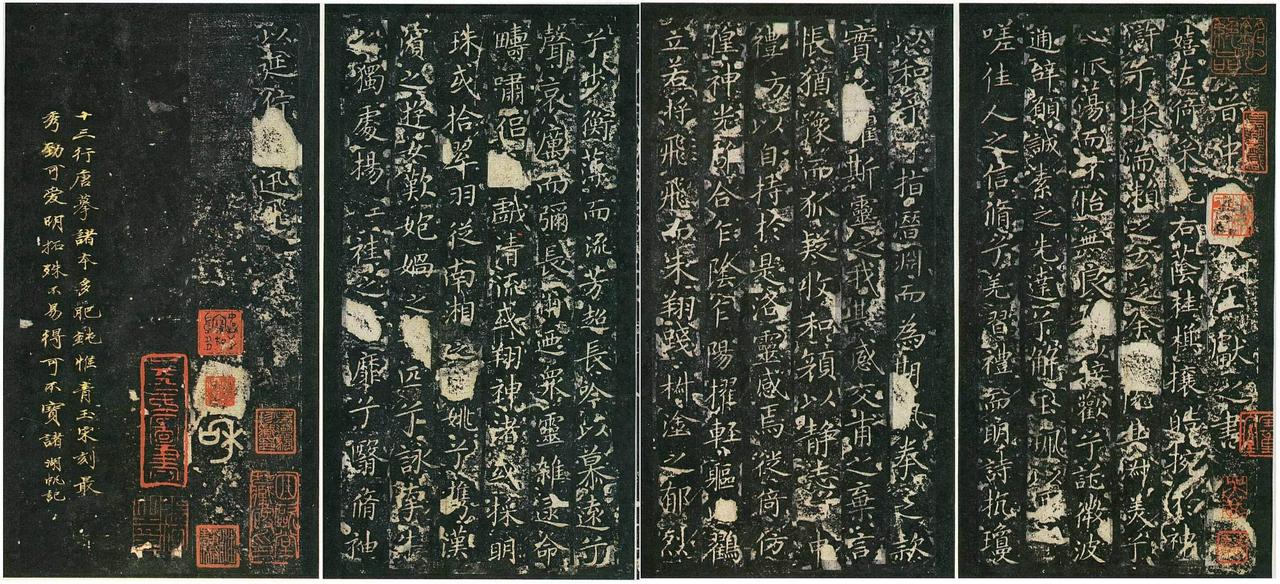 晉中王獻之書
嬉左倚采旄右蔭桂旗攘皓捥於神
滸兮採湍瀨之玄芝余情其美兮
心振蕩而不怡無良以接歡兮託微波
通辭願誠素之先達兮解玉珮
嗟佳人之信脩兮羌習禮而明詩抗瓊
以和予兮指潛淵而為期奉之款
實懼斯靈之我欺感交甫之棄言
悵猶豫而狐疑收和顏以靜志申
禮防以自持於是洛靈感焉徙倚仿
偟神光離合乍陰乍陽擢輕軀鶴
立若將飛而未翔踐椒塗之郁烈
兮步衡薄而流芳超長吟以慕遠兮
聲哀厲而彌長爾迺眾靈雜遝命
疇嘯侶戲清流或翔神渚或採明
珠或拾翠羽從南湘之姚兮攜漢
濱之遊女歎匏媧之匹兮詠牽牛
之獨處揚袿之靡兮翳脩袖
以延佇迅飛
和
十三行唐摹諸本多肥鈍惟青玉宋刻最
秀勁可愛明拓殊不易得可不寶諸湖帆記